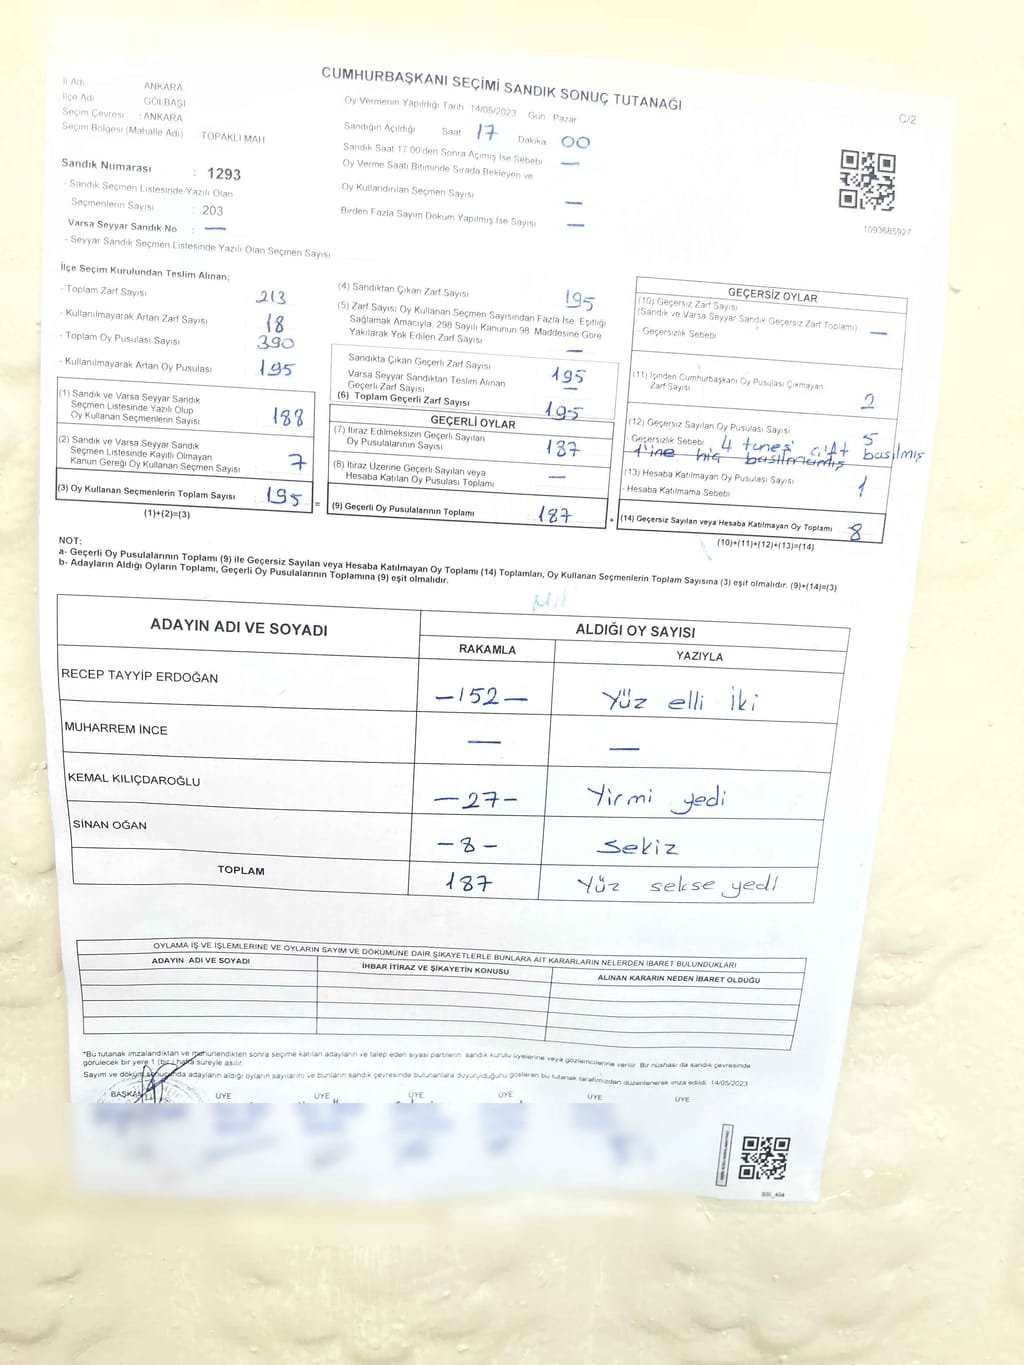 CUMHURBAŞKANI SEÇİMİ SANDIK SONUÇ TUTANAĞI
C/2
İl Adı ANKARA
İlçe Adı GÖLBAŞI
Seçim Çevresi : ANKARA
Seçim Bölgesi (Mahalle Adı) TOPAKLI MAH
Sandık Numarası : 1293
- Sandık Seçmen Listesinde Yazılı Olan
Seçmenlerin Sayısı : 203
Varsa Seyyar Sandık No : —
- Seyyar Sandık Seçmen Listesinde Yazılı Olan Seçmen Sayısı
Oy Vermenin Yapıldığı Tarih 14/05/2023 Gün Pazar
Sandığın Açıldığı Saat 17 Dakika 00
Sandık Saat 17:00'den Sonra Açımış İse Sebebi —
Oy Verme Saati Bitiminde Sırada Bekleyen ve
Oy Kullandırılan Seçmen Sayısı —
Birden Fazla Sayım Döküm Yapılmış İse Sayısı —
1093685927
İlçe Seçim Kurulundan Teslim Alınan;
- Toplam Zarf Sayısı 213
- Kullanılmayarak Artan Zarf Sayısı 18
- Toplam Oy Pusulası Sayısı 390
- Kullanılmayarak Artan Oy Pusulası 195
(1) Sandık ve Varsa Seyyar Sandık
Seçmen Listesinde Yazılı Olup
Oy Kullanan Seçmenlerin Sayısı 188
(2) Sandık ve Varsa Seyyar Sandık
Seçmen Listesinde Kayıtlı Olmayan
Kanun Gereği Oy Kullanan Seçmen Sayısı 7
(3) Oy Kullanan Seçmenlerin Toplam Sayısı 195 =
(1)+(2)=(3)
(4) Sandıktan Çıkan Zarf Sayısı 195
(5) Zarf Sayısı Oy Kullanan Seçmen Sayısından Fazla İse, Eşitliği
Sağlamak Amacıyla, 298 Sayılı Kanunun 98. Maddesine Göre
Yakılarak Yok Edilen Zarf Sayısı —
Sandıkta Çıkan Geçerli Zarf Sayısı 195
Varsa Seyyar Sandıktan Teslim Alınan
Geçerli Zarf Sayısı —
(6) Toplam Geçerli Zarf Sayısı 195
GEÇERLİ OYLAR
(7) İtiraz Edilmeksizin Geçerli Sayılan
Oy Pusulasının Sayısı 187
(8) İtiraz Üzerine Geçerli Sayılan veya
Hesaba Katılan Oy Pusulası Toplamı —
(9) Geçerli Oy Pusulalarının Toplamı 187 +
GEÇERSİZ OYLAR
(10) Geçersiz Zarf Sayısı
(Sandık ve Varsa Seyyar Sandık Geçersiz Zarf Toplamı) —
- Geçersizlik Sebebi
(11) İçinden Cumhurbaşkanı Oy Pusulası Çıkmayan
Zarf Sayısı 2
(12) Geçersiz Sayılan Oy Pusulası Sayısı 5
- Geçersizlik Sebebi 4 tanesi çift basılmış
1'ine hiç basılmamış
(13) Hesaba Katılmayan Oy Pusulası Sayısı 1
- Hesaba Katılmama Sebebi
(14) Geçersiz Sayılan veya Hesaba Katılmayan Oy Toplamı 8
(10)+(11)+(12)+(13)=(14)
NOT:
a- Geçerli Oy Pusulalarının Toplamı (9) ile Geçersiz Sayılan veya Hesaba Katılmayan Oy Toplamı (14) Toplamları, Oy Kullanan Seçmenlerin Toplam Sayısına (3) eşit olmalıdır. (9)+(14)=(3)
b- Adayların Aldığı Oyların Toplamı, Geçerli Oy Pusulalarının Toplamına (9) eşit olmalıdır.
ADAYIN ADI VE SOYADI ALDIĞI OY SAYISI
RAKAMLA YAZIYLA
RECEP TAYYİP ERDOĞAN —152— Yüz elli iki
MUHARREM İNCE — —
KEMAL KILIÇDAROĞLU —27— Yirmi yedi
SİNAN OĞAN —8— Sekiz
TOPLAM 187 Yüz sekse yedi
OYLAMA İŞ VE İŞLEMLERİNE VE OYLARIN SAYIM VE DÖKÜMÜNE DAİR ŞİKAYETLERLE BUNLARA AİT KARARLARIN NELERDEN İBARET BULUNDUKLARI
ADAYIN ADI VE SOYADI İHBAR İTİRAZ VE ŞİKAYETİN KONUSU ALINAN KARARIN NEDEN İBARET OLDUĞU
*Bu tutanak imzalandıktan ve mühürlendikten sonra seçime katılan adayların ve talep eden siyasi partilerin sandık kurulu üyelerine veya gözlemcilerine verilir. Bir nüshası da sandık çevresinde
görülecek bir yere 1 (bir) hafta süreyle asılır.
Sayım ve döküm sonucunda adayların aldığı oyların sayılarını ve bunların sandık çevresinde bulunanlara duyurulduğunu gösteren bu tutanak tarafımızdan düzenlenerek imza edildi. 14/05/2023
BAŞKAN ÜYE ÜYE ÜYE ÜYE ÜYE ÜYE